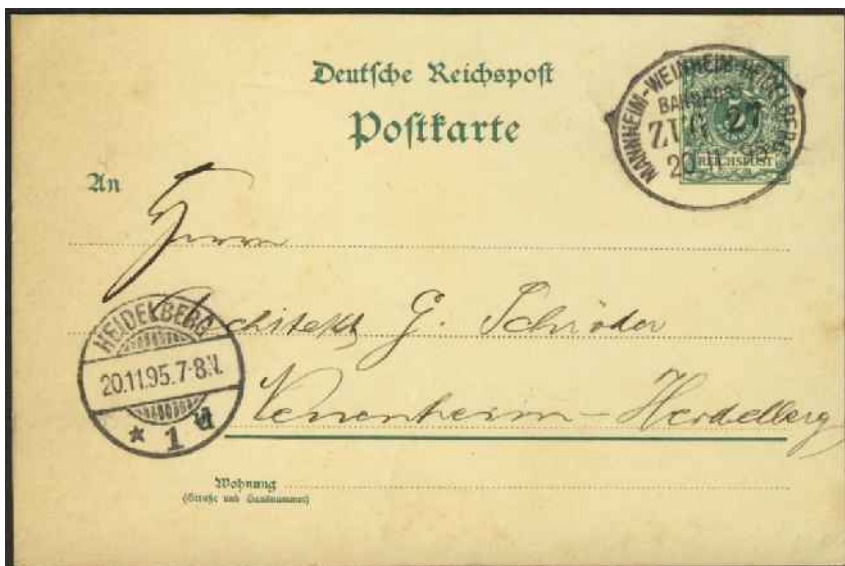 Deutsche Reichspost
Postkarte
MANNHEIM-WEINHEIM-HEIDELBERG
BAHNPOST
ZUG 27
20 11 95
5
REICHSPOST
An
Herrn
Architekt G. Schröder
Neuenheim - Heidelberg
HEIDELBERG
20.11.95.7-8V.
* 1
Wohnung
(Straße und Hausnummer)